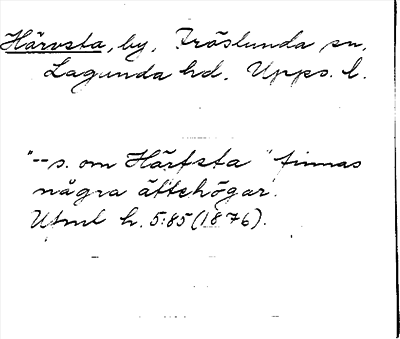 Härvsta, by, Fröslunda sn,
Lagunda hd. Upps. l.
"--s. om Härfsta" finnas
några ättehögar.
Ufmt h. 5:85 (1876).